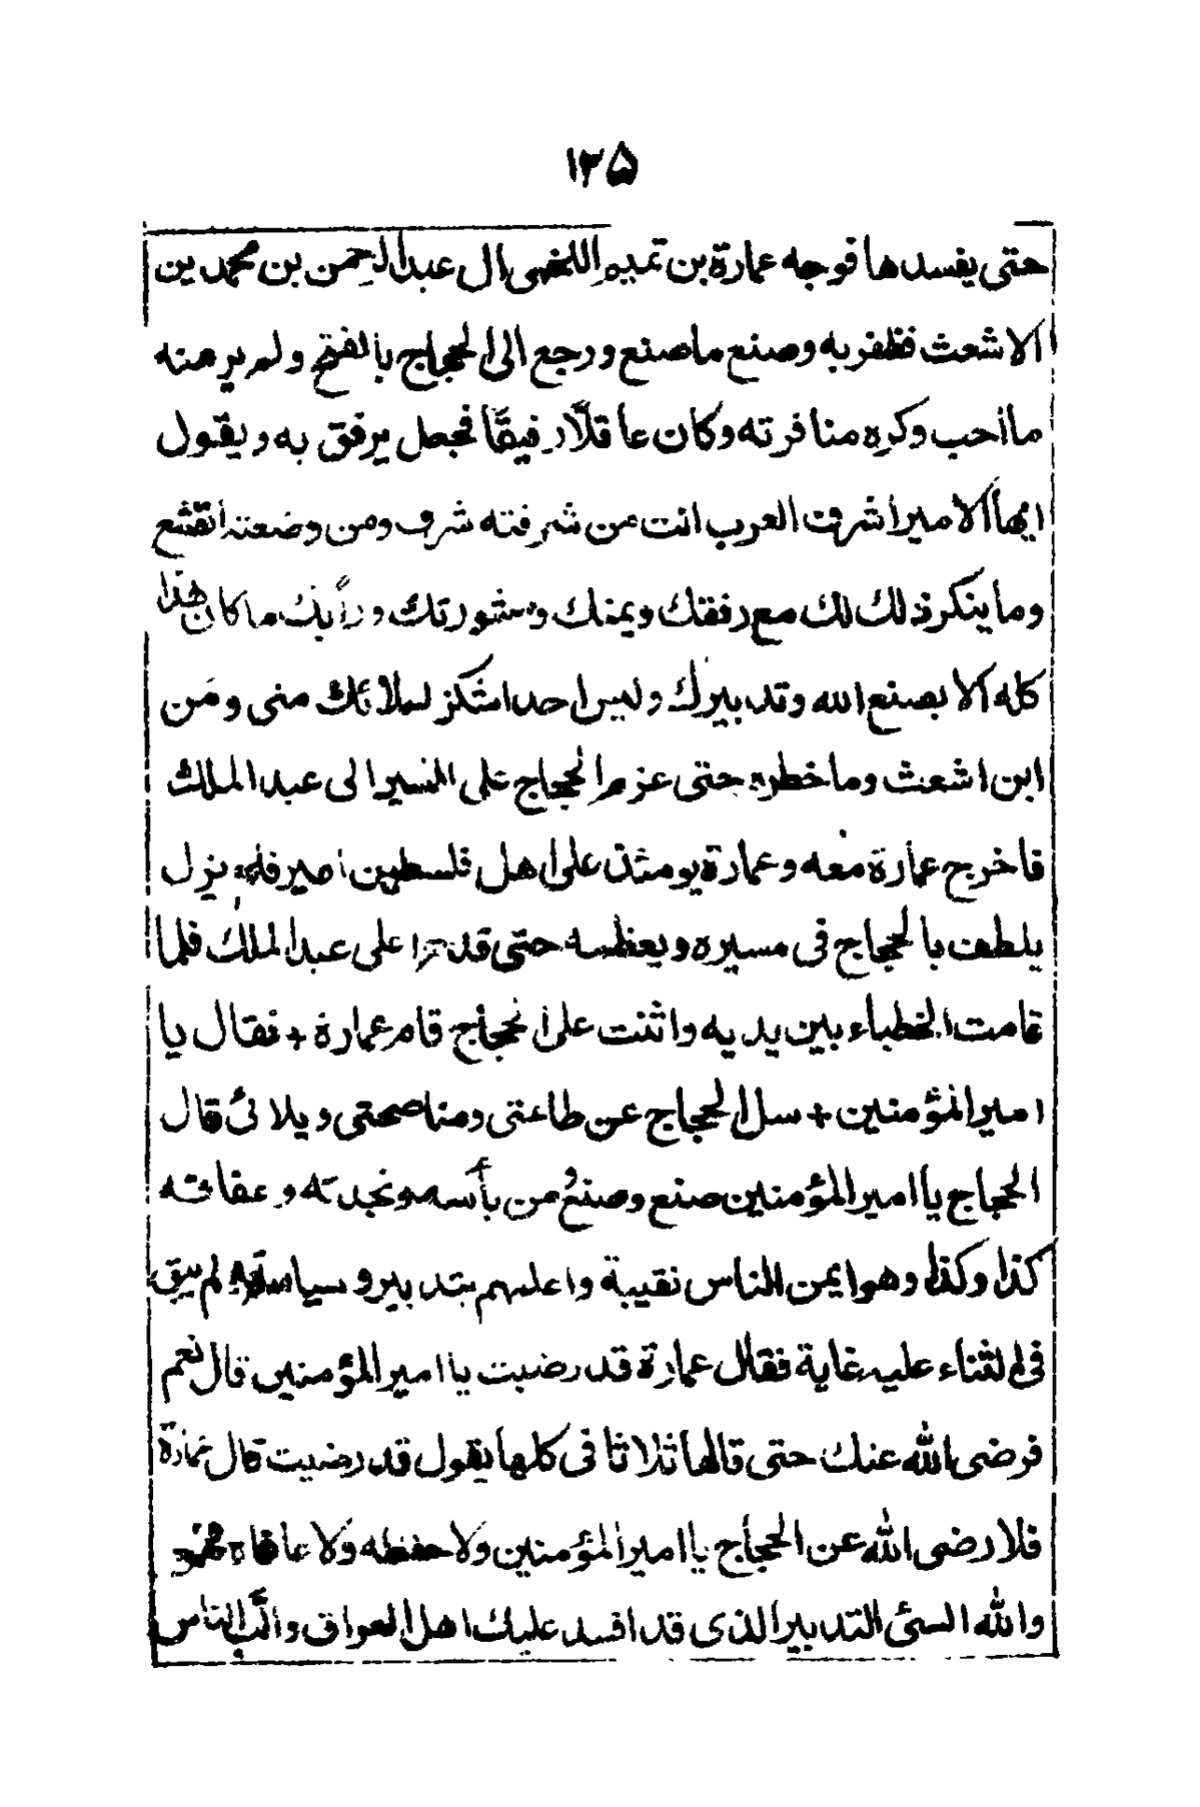 ١٣٥
حتى يفسدها فوجه عمارة بن تميم اللخمى الى عبد الرحمن بن محمد بن
الاشعث فظفر به وصنع ما صنع ورجع الى الحجاج بالفتح ولم ير منه
ما احب وكره منافرته وكان عاقلًا رفيقًا فجعل يرفق به ويقول
ايها الامير اشرف العرب انت من شرفته شرف ومن وضعته اتضع
وما ينكر ذلك لك مع رفقك ويمنك ومشورتك ورأيك ما كان هذا
كله الا بصنع الله وتدبيرك وليس احد اشكر لبلائك منى ومَن
ابن اشعث وما خطره حتى عزم الحجاج على المسير الى عبد الملك
فاخرج عمارة معه وعمارة يومئذ على اهل فلسطين امير فلم يزل
يلطف بالحجاج فى مسيره ويعظمه حتى قدموا على عبد الملك فلما
قامت الخطباء بين يديه واثنت على الحجاج قام عمارة + فقال يا
امير المؤمنين + سل الحجاج عن طاعتى ومناصحتى وبلائى قال
الحجاج يا امير المؤمنين صنع وصنعُ من بأسه ونجدته وعفافه
كذا وكذا وهو ايمن الناس نقيبة واعلمهم بتدبير وسياسة لم يبق
فى الثناء عليه غاية فقال عمارة قد رضيت يا امير المؤمنين قال نعم
فرضى الله عنك حتى قالها ثلاثا فى كلها يقول قد رضيت قال عمارة
فلا رضى الله عن الحجاج يا امير المؤمنين ولا حفظه ولا عافاه فهو
والله السئ التدبير الذى قد افسد عليك اهل العراق والّب الناس